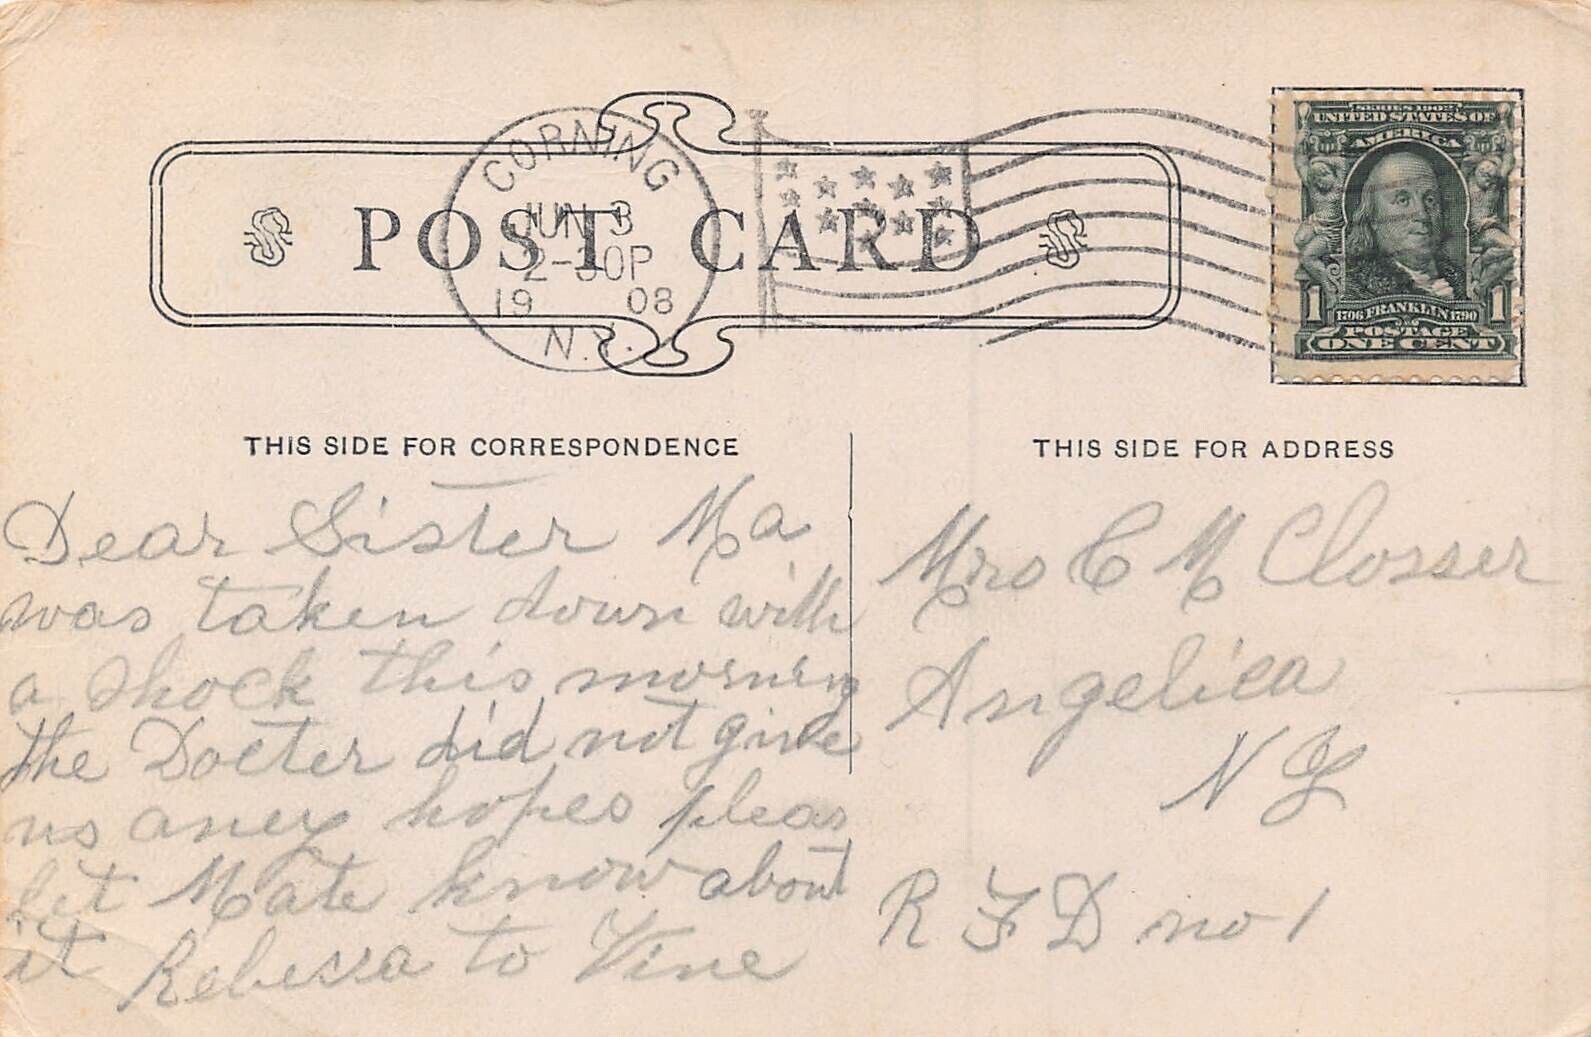 CORNING
JUN 3
2-30P
19 08
N.Y.
POST CARD
SERIES 1902
UNITED STATES OF
AMERICA
1 1706 FRANKLIN 1790 1
POSTAGE
ONE CENT
THIS SIDE FOR CORRESPONDENCE
Dear Sister Ma
was taken down with
a shock this morning
the Docter did not give
us aney hopes pleas
let Mate know about
it Rebessa to Vine
THIS SIDE FOR ADDRESS
Mrs C M Closser
Angelica
N Y
R F D no 1